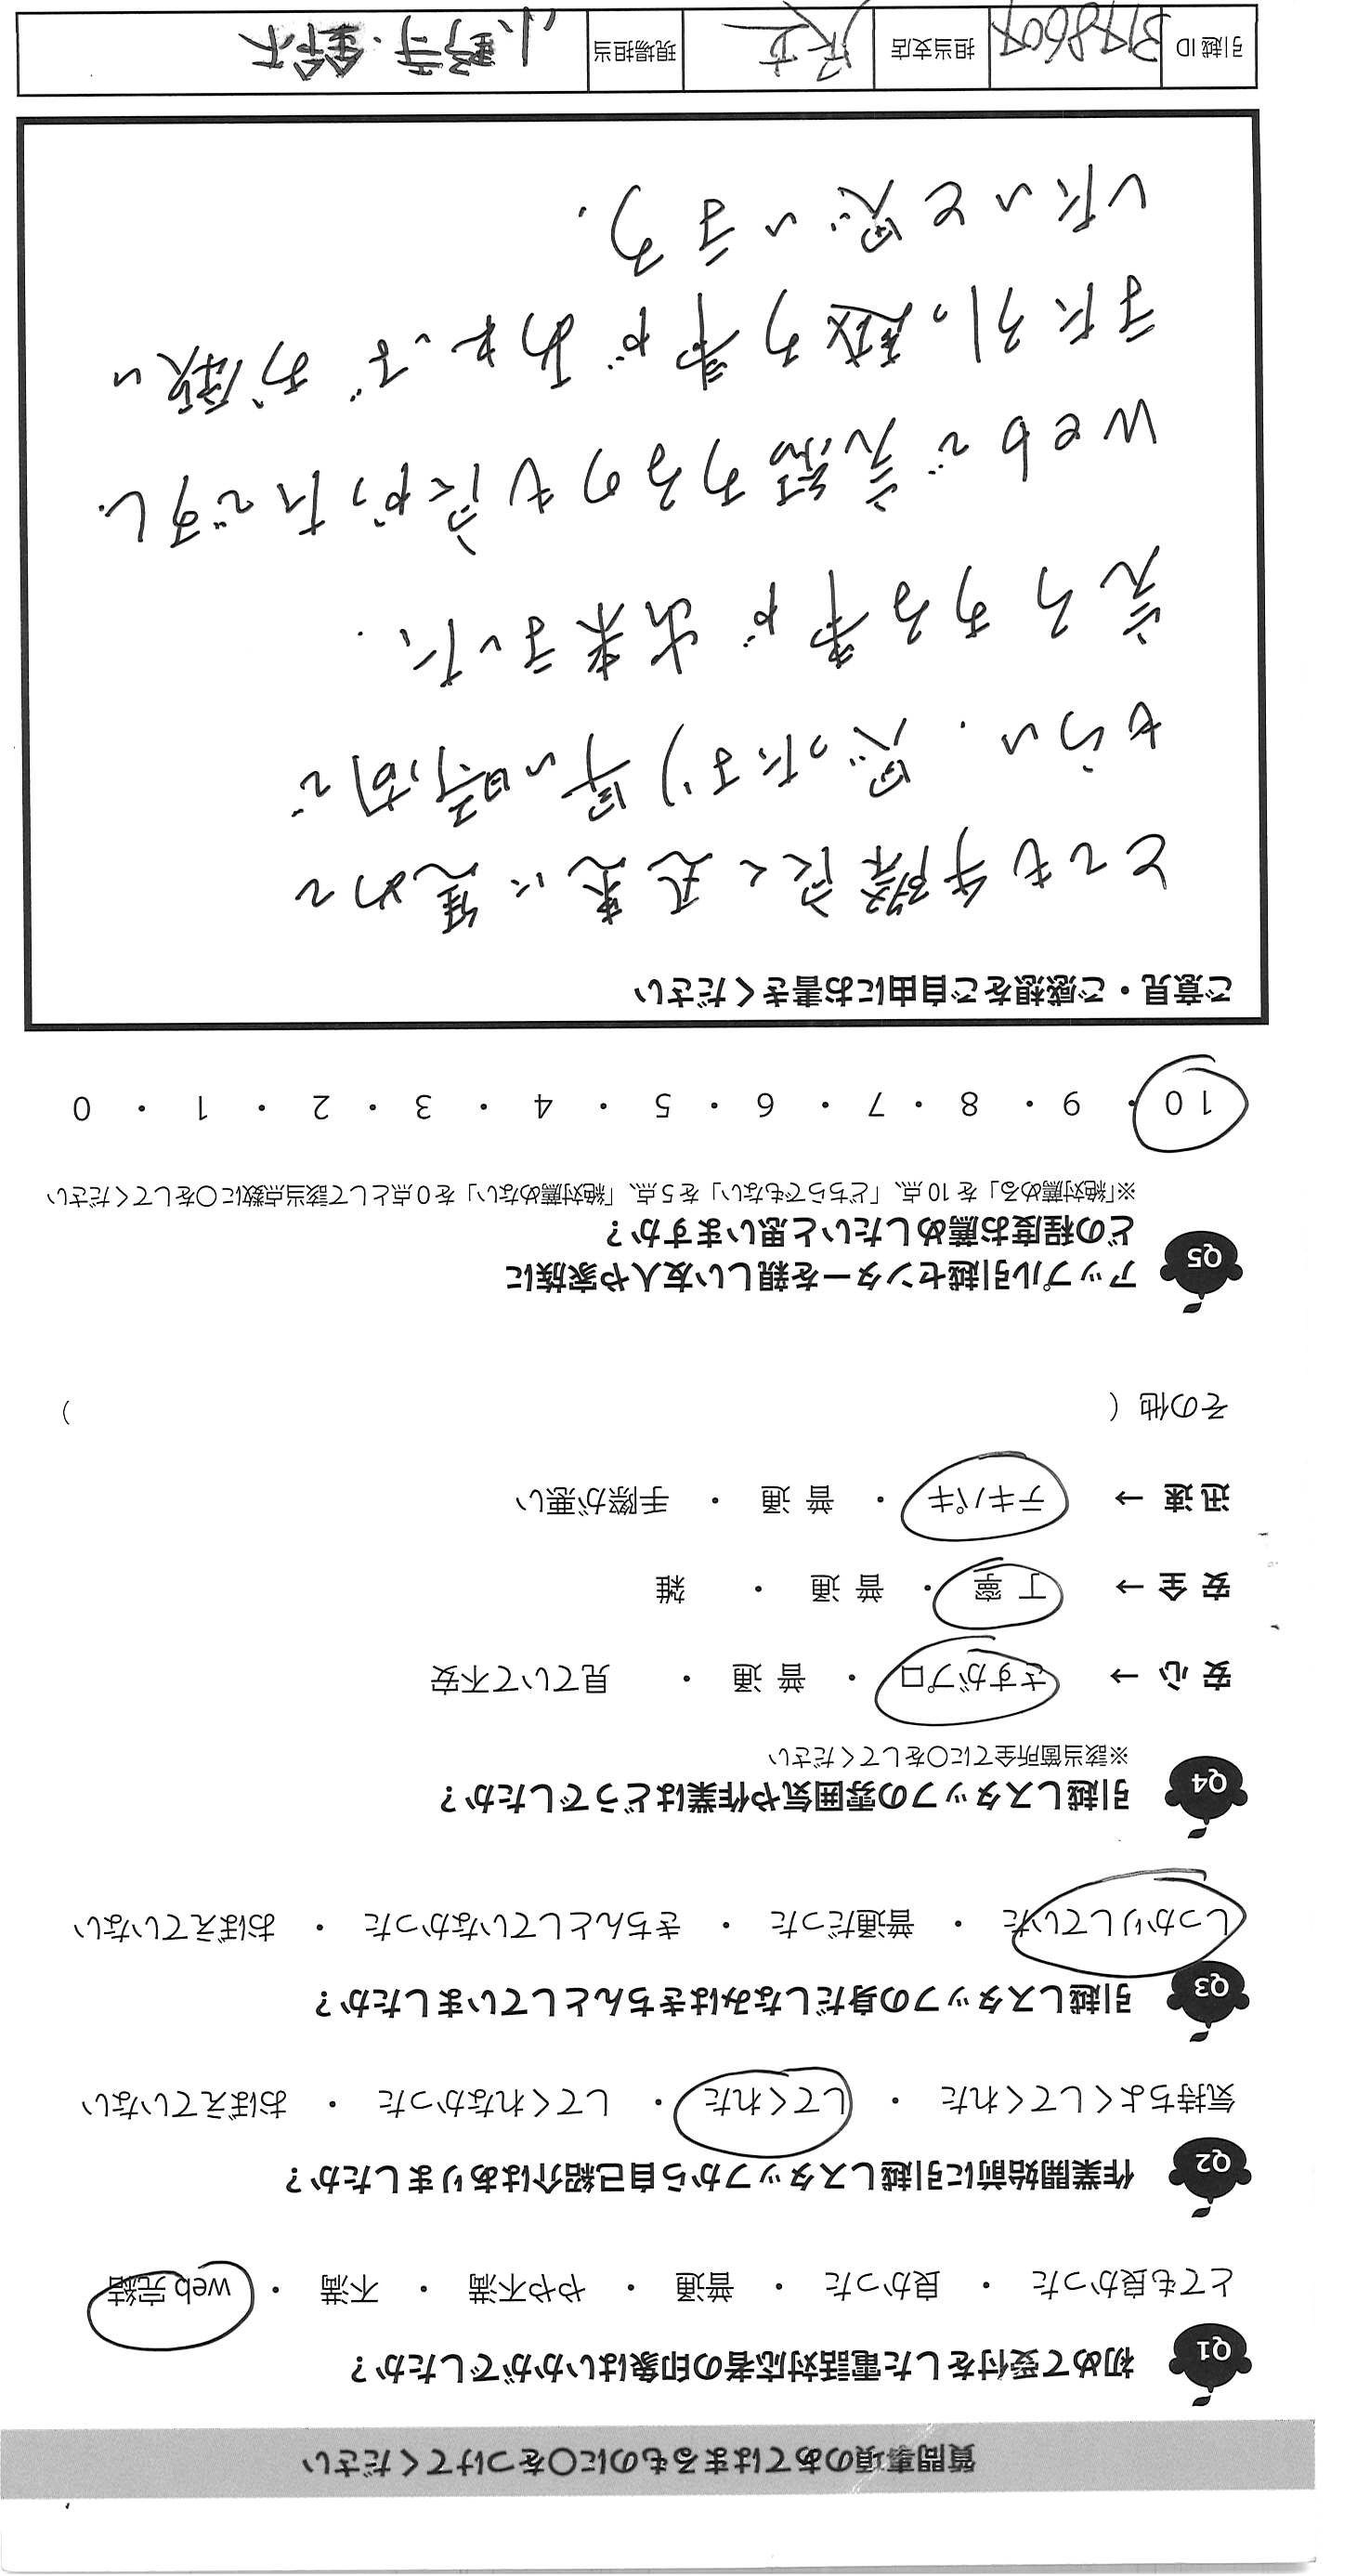 質問事項のあてはまるものに〇をつけてください
Q1 初めて受付をした電話対応者の印象はいかがでしたか？
とても良かった ・ 良かった ・ 普通 ・ やや不満 ・ 不満 ・ web 完結
Q2 作業開始前に引越しスタッフから自己紹介はありましたか？
気持ちよくしてくれた ・ してくれた ・ してくれなかった ・ おぼえていない
Q3 引越しスタッフの身だしなみはきちんとしていましたか？
しっかりしていた ・ 普通だった ・ きちんとしていなかった ・ おぼえていない
Q4 引越しスタッフの雰囲気や作業はどうでしたか？
※該当箇所全てに〇をしてください
安 心 → さすがプロ ・ 普 通 ・ 見ていて不安
安 全 → 丁 寧 ・ 普 通 ・ 雑
迅 速 → テキパキ ・ 普 通 ・ 手際が悪い
その他（ ）
Q5 アップル引越センターを親しい友人や家族に
どの程度お薦めしたいと思いますか？
※「絶対薦める」を 10 点、「どちらでもない」を 5 点、「絶対薦めない」を 0 点として該当点数に〇をしてください
10 ・ 9 ・ 8 ・ 7 ・ 6 ・ 5 ・ 4 ・ 3 ・ 2 ・ 1 ・ 0
ご意見・ご感想をご自由にお書きください
とても手際良く迅速に進めて
もらい、思ったより早い時間で
完了する事が出来ました。
Webで完結するのも良かったですし、
また引っ越す事があれば お願い
したいと思います。
引越 ID 担当支店 足立 現場担当 小野寺・鈴木